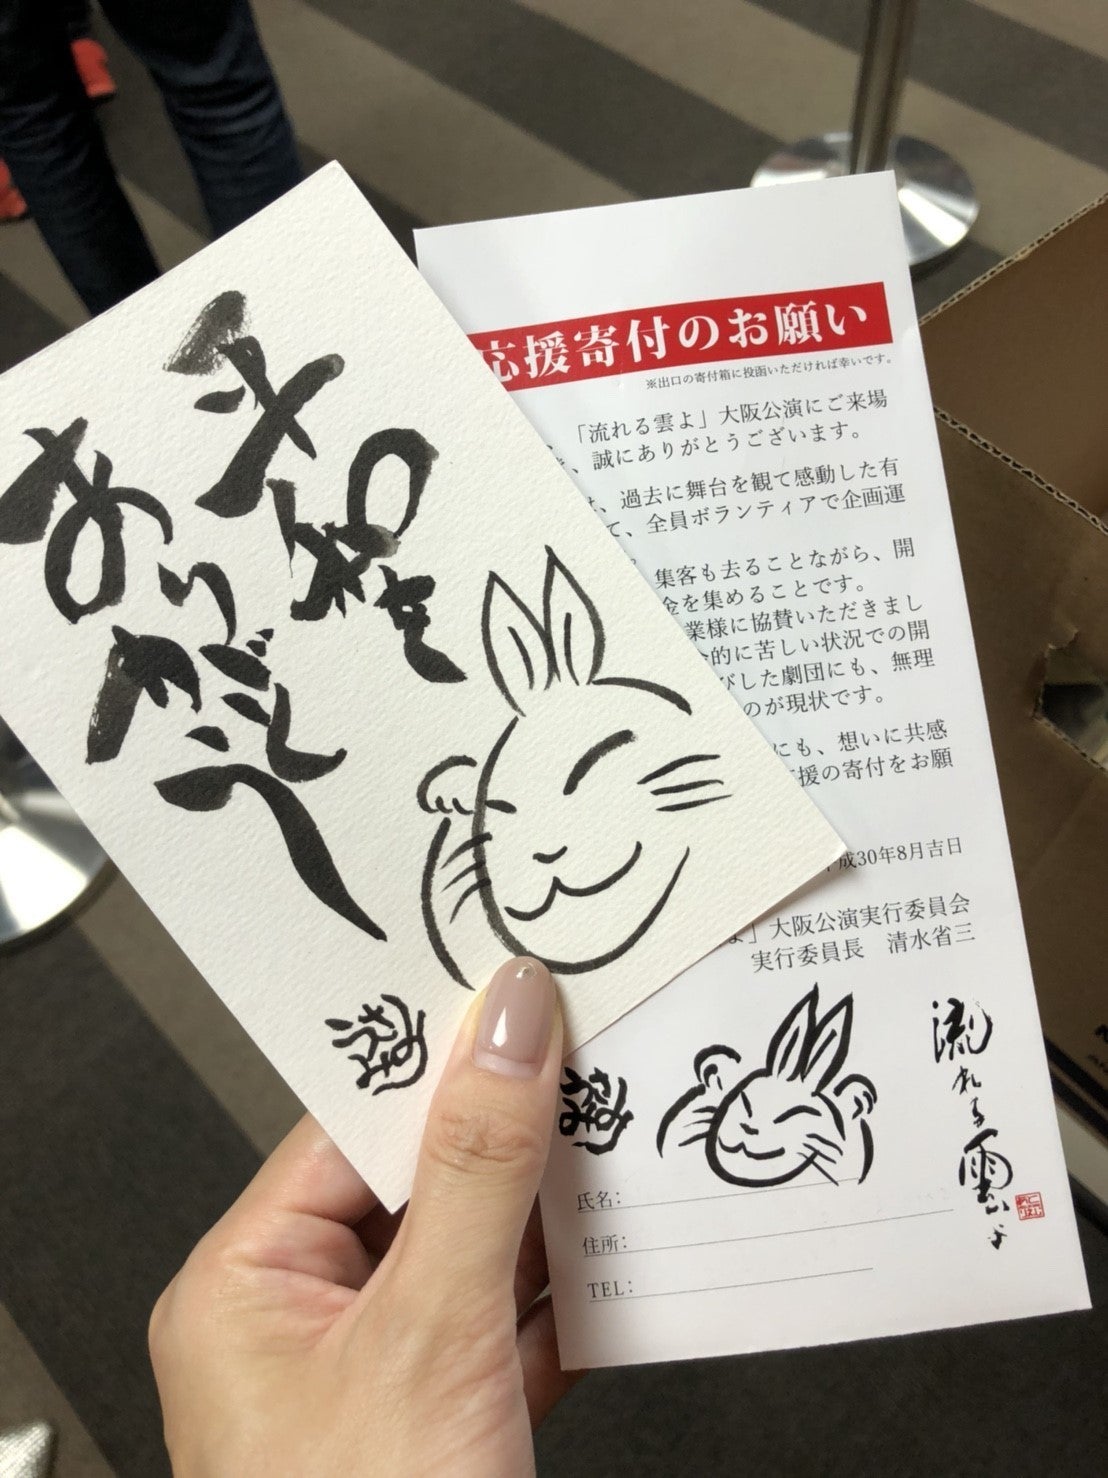 ありがとう
応援寄付のお願い
※出口の寄付箱に投函いただければ幸いです。
、「流れる雲よ」大阪公演にご来場
、誠にありがとうございます。
、過去に舞台を観て感動した有
て、全員ボランティアで企画運
集客も去ることながら、開
金を集めることです。
業様に協賛いただきまし
的に苦しい状況での開
びした劇団にも、無理
のが現状です。
にも、想いに共感
援の寄付をお願
成30年8月吉日
よ」大阪公演実行委員会
実行委員長 清水省三
流れる雲よ
氏名:
住所:
TEL: